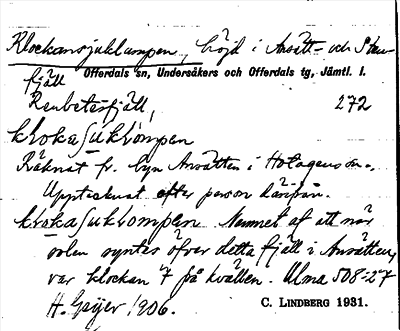 Klockansjuklumpen, höjd i Ansätt- och Sten-
fjäll
Offerdals sn, Undersåkers och Offerdals tg, Jämtl. l.
Renbetesfjäll, 272
Räknat fr. byn Ansätten i Hotagens sn.
Upptecknat efter person därifrån.
Namnet af att när
solen syntes öfver detta fjäll i Ansätten,
var klockan 7 på kvällen. Ulma 508:27
H. Geijer 1906.
C. LINDBERG 1931.